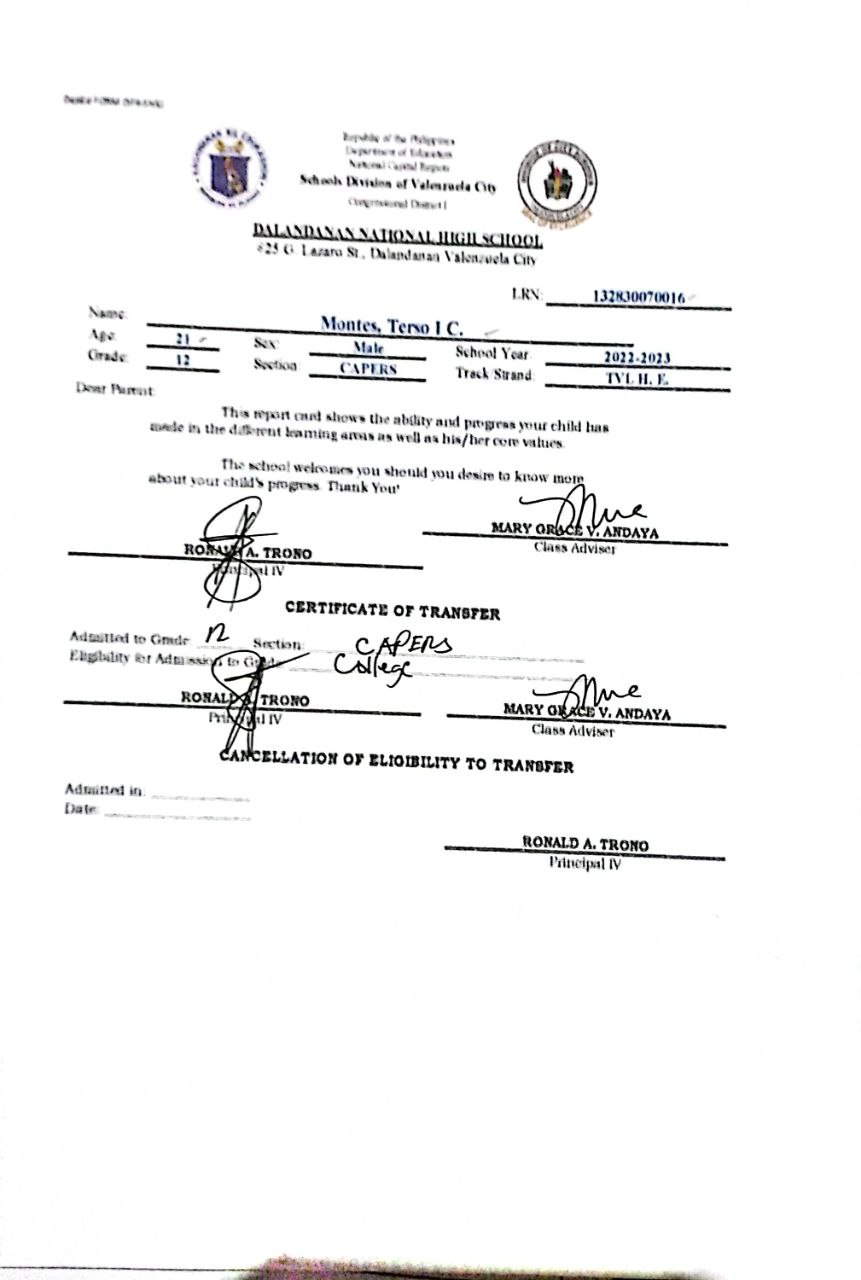 Republic of the Philippines
Department of Education
National Capital Region
Schools Division of Valenzuela City
Congressional District I
DALANDANAN NATIONAL HIGH SCHOOL
825 G. Lazaro St., Dalandanan Valenzuela City
LRN: 132830070016
Name: Montes, Terso I C.
Age: 21 Sex: Male School Year 2022-2023
Grade: 12 Section: CAPERS Track Strand: TVL H. E.
Dear Parent:
This report card shows the ability and progress your child has
made in the different learning areas as well as his/her core values.
The school welcomes you should you desire to know more
about your child's progress. Thank You!
RONALD A. TRONO MARY GRACE V. ANDAYA
Principal IV Class Adviser
CERTIFICATE OF TRANSFER
Admitted to Grade: 12 Section: CAPERS
Eligibility for Admission to Grade: College
RONALD A. TRONO MARY GRACE V. ANDAYA
Principal IV Class Adviser
CANCELLATION OF ELIGIBILITY TO TRANSFER
Admitted in:
Date:
RONALD A. TRONO
Principal IV